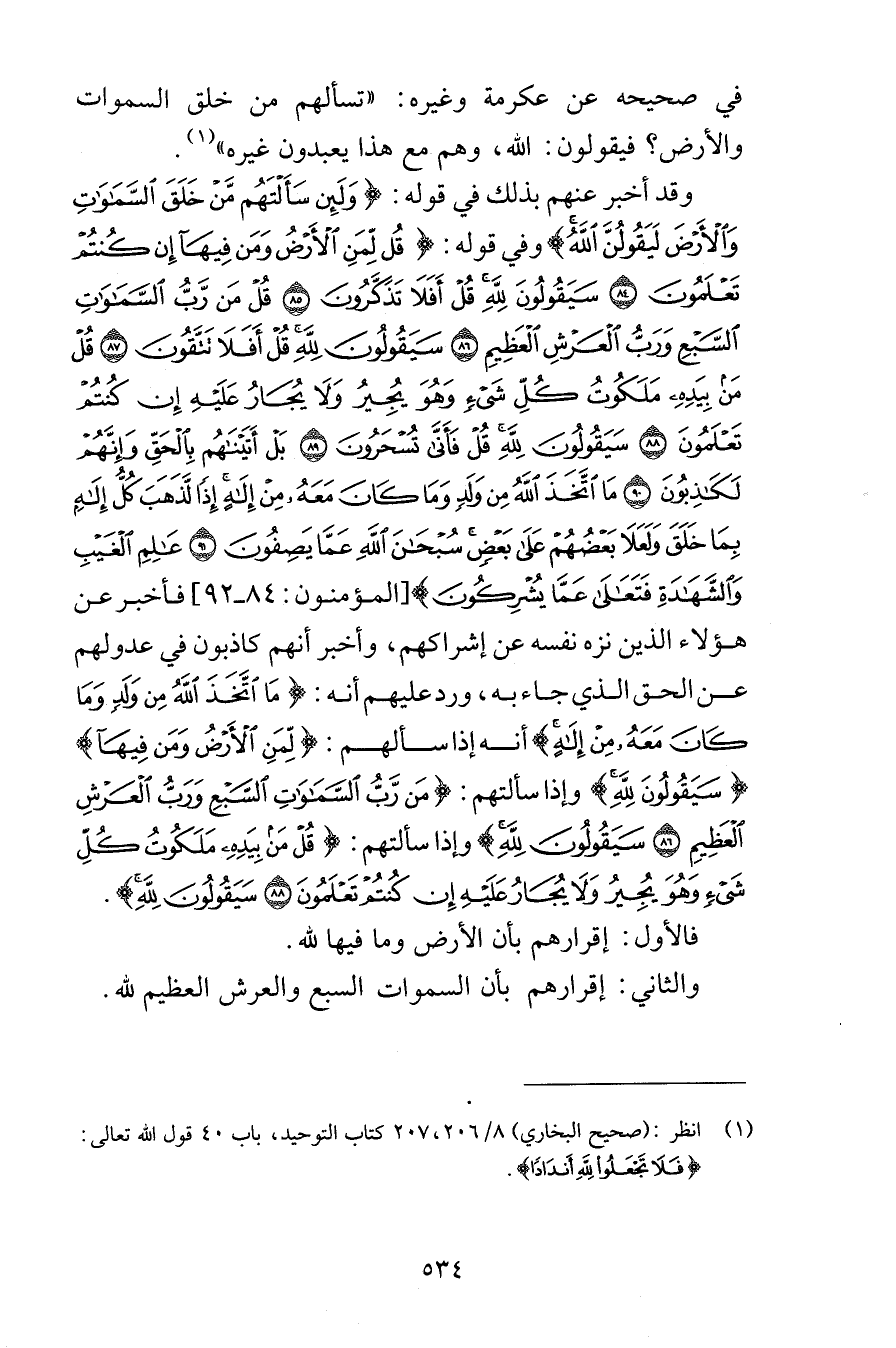 في صحيحه عن عكرمة وغيره: «تسألهم من خلق السموات
والأرض؟ فيقولون: الله، وهم مع هذا يعبدون غيره»(١).
وقد أخبر عنهم بذلك في قوله: ﴿ وَلَئِن سَأَلْتَهُم مَّنْ خَلَقَ السَّمَاوَاتِ
وَالْأَرْضَ لَيَقُولُنَّ اللَّهُ﴾ وفي قوله: ﴿ قُل لِّمَنِ الْأَرْضُ وَمَن فِيهَا إِن كُنتُمْ
تَعْلَمُونَ ﴿٨٤﴾ سَيَقُولُونَ لِلَّهِ قُلْ أَفَلَا تَذَكَّرُونَ ﴿٨٥﴾ قُلْ مَن رَّبُّ السَّمَاوَاتِ
السَّبْعِ وَرَبُّ الْعَرْشِ الْعَظِيمِ ﴿٨٦﴾ سَيَقُولُونَ لِلَّهِ قُلْ أَفَلَا نَتَّقُونَ ﴿٨٧﴾ قُلْ
مَنْ بِيَدِهِ مَلَكُوتُ كُلِّ شَيْءٍ وَهُوَ يُجِيرُ وَلَا يُجَارُ عَلَيْهِ إِن كُنتُمْ
تَعْلَمُونَ ﴿٨٨﴾ سَيَقُولُونَ لِلَّهِ قُلْ فَأَنَّى تُسْحَرُونَ ﴿٨٩﴾ بَلْ أَتَيْنَاهُم بِالْحَقِّ وَإِنَّهُمْ
لَكَاذِبُونَ ﴿٩٠﴾ مَا اتَّخَذَ اللَّهُ مِن وَلَدٍ وَمَا كَانَ مَعَهُ مِنْ إِلَهٍ إِذًا لَّذَهَبَ كُلُّ إِلَهٍ
بِمَا خَلَقَ وَلَعَلَا بَعْضُهُمْ عَلَى بَعْضٍ سُبْحَانَ اللَّهِ عَمَّا يَصِفُونَ ﴿٩١﴾ عَالِمِ الْغَيْبِ
وَالشَّهَادَةِ فَتَعَالَى عَمَّا يُشْرِكُونَ﴾ [المؤمنون: ٨٤ـ٩٢] فأخبر عن
هؤلاء الذين نزه نفسه عن إشراكهم، وأخبر أنهم كاذبون في عدولهم
عن الحق الذي جاء به، ورد عليهم أنه: ﴿ مَا اتَّخَذَ اللَّهُ مِن وَلَدٍ وَمَا
كَانَ مَعَهُ مِنْ إِلَهٍ﴾ أنه إذا سألهم: ﴿ لِّمَنِ الْأَرْضُ وَمَن فِيهَا ﴾
﴿ سَيَقُولُونَ لِلَّهِ﴾ وإذا سألتهم: ﴿ مَن رَّبُّ السَّمَاوَاتِ السَّبْعِ وَرَبُّ الْعَرْشِ
الْعَظِيمِ ﴿٨٦﴾ سَيَقُولُونَ لِلَّهِ﴾ وإذا سألتهم: ﴿ قُلْ مَنْ بِيَدِهِ مَلَكُوتُ كُلِّ
شَيْءٍ وَهُوَ يُجِيرُ وَلَا يُجَارُ عَلَيْهِ إِن كُنتُمْ تَعْلَمُونَ ﴿٨٨﴾ سَيَقُولُونَ لِلَّهِ﴾.
فالأول: إقرارهم بأن الأرض وما فيها لله.
والثاني: إقرارهم بأن السموات السبع والعرش العظيم لله.
(١) انظر: (صحيح البخاري) ٨/ ٢٠٦، ٢٠٧ كتاب التوحيد، باب ٤٠ قول الله تعالى:
﴿ فَلَا تَجْعَلُوا لِلَّهِ أَندَادًا﴾.
٥٣٤